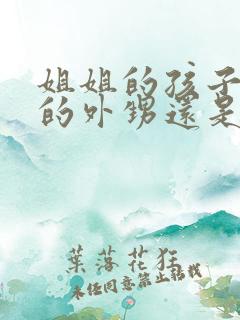 姐姐的孩子
的外甥還是
葉落花狂
未经同意禁止转载